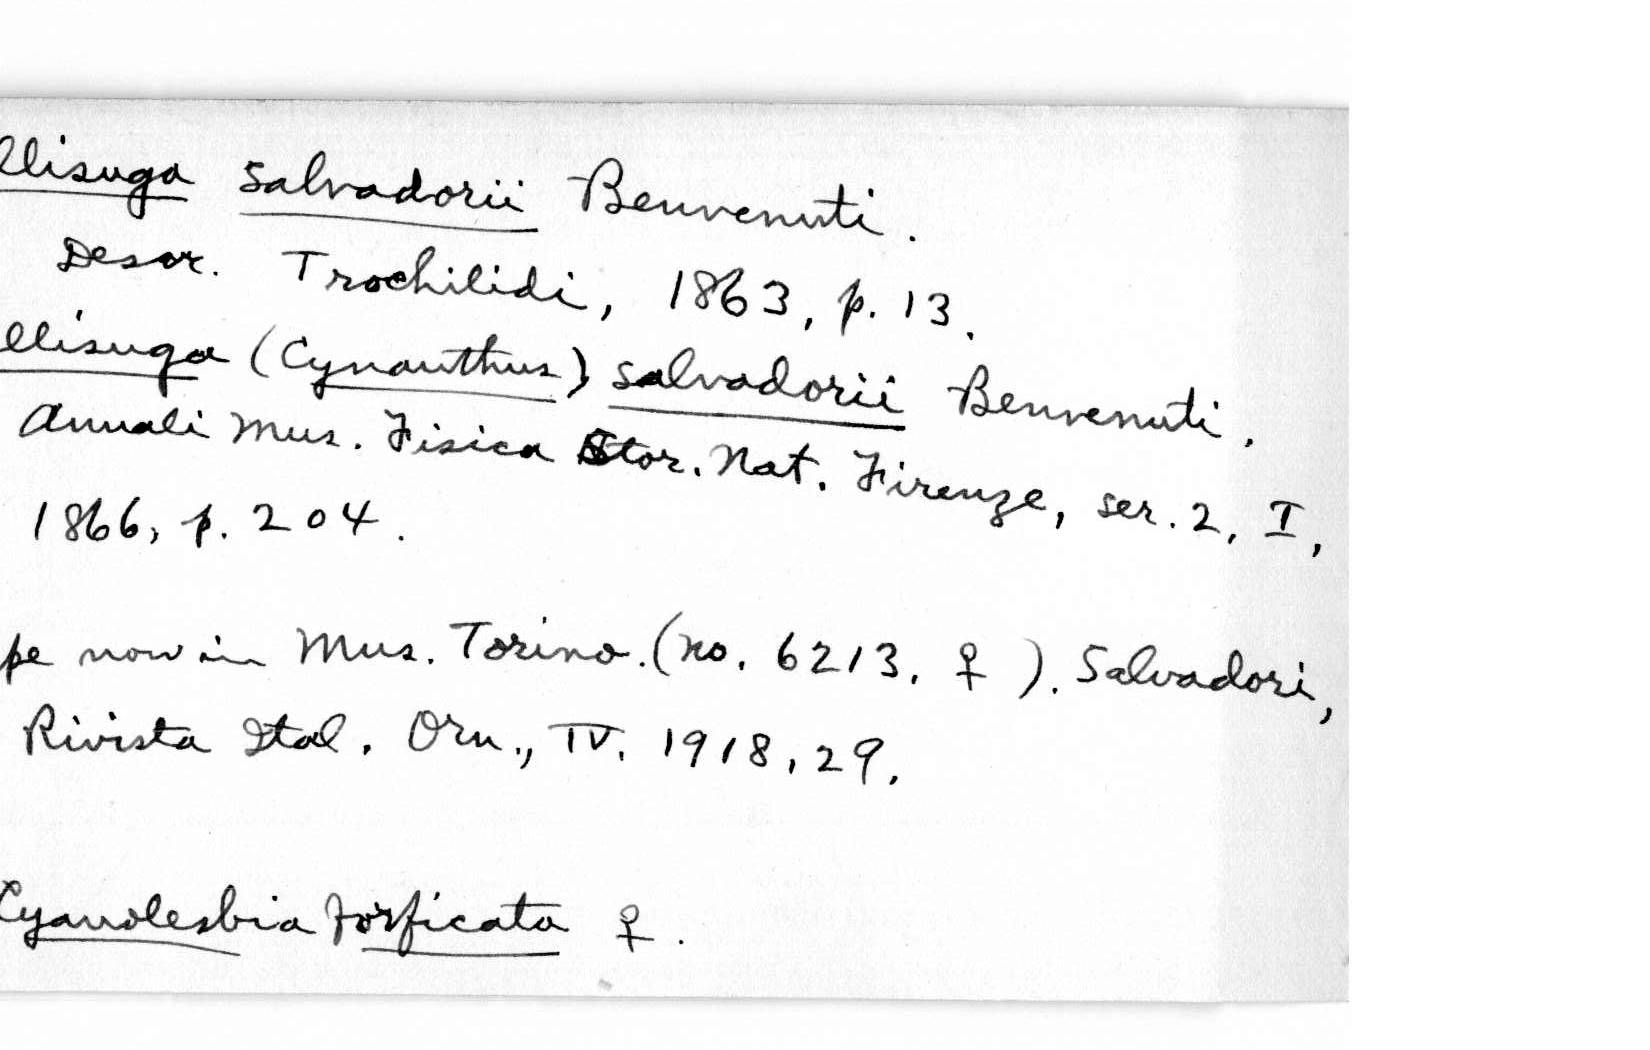 llisuga salvadorii Benvenuti.
Descr. Trochilidi, 1863, p. 13.
ellisuga (Cynanthus) salvadorii Benvenuti.
Annali Mus. Fisica Stor. Nat. Firenze, ser. 2, I,
1866, p. 204.
pe now in Mus. Torino. (no. 6213, ♀ ). Salvadori,
Rivista Ital. Orn., IV. 1918, 29.
Cyanolesbia forficata ♀.